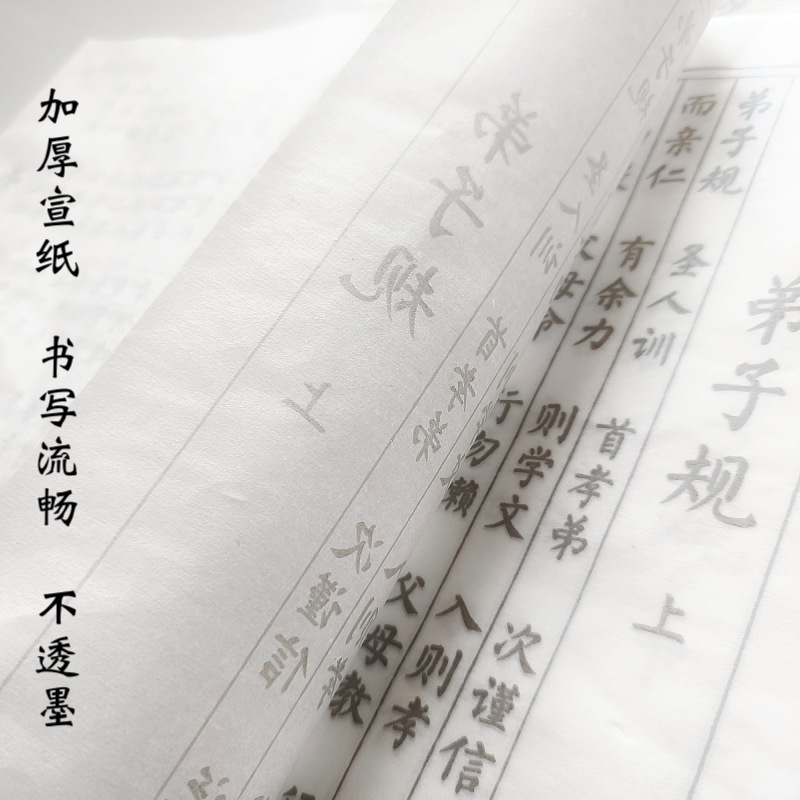 加厚宣纸 书写流畅 不透墨
弟子规 上
弟子规 圣人训 首孝弟 次谨信
而亲仁 有余力 则学文 入则孝
父母教